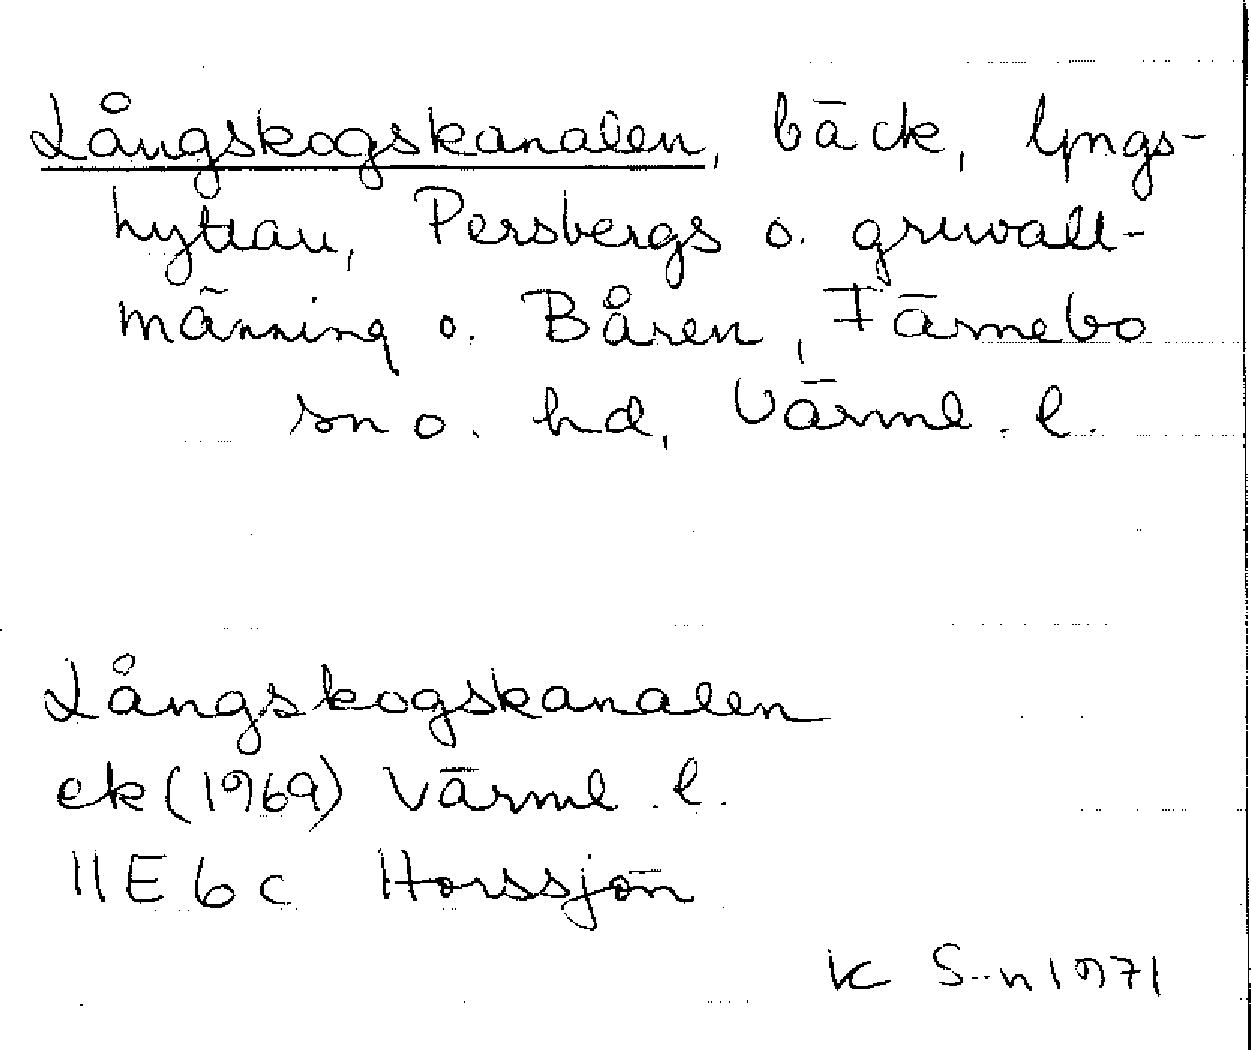 Långskogskanalen, bäck, lyngs-
hyttan, Persbergs o. gruvall-
männing o. Båren, Färnebo
sn o. hd, Värml. l.
Långskogskanalen
ek (1969) Värml. l.
11E 6c Horssjön
K S-n 1971